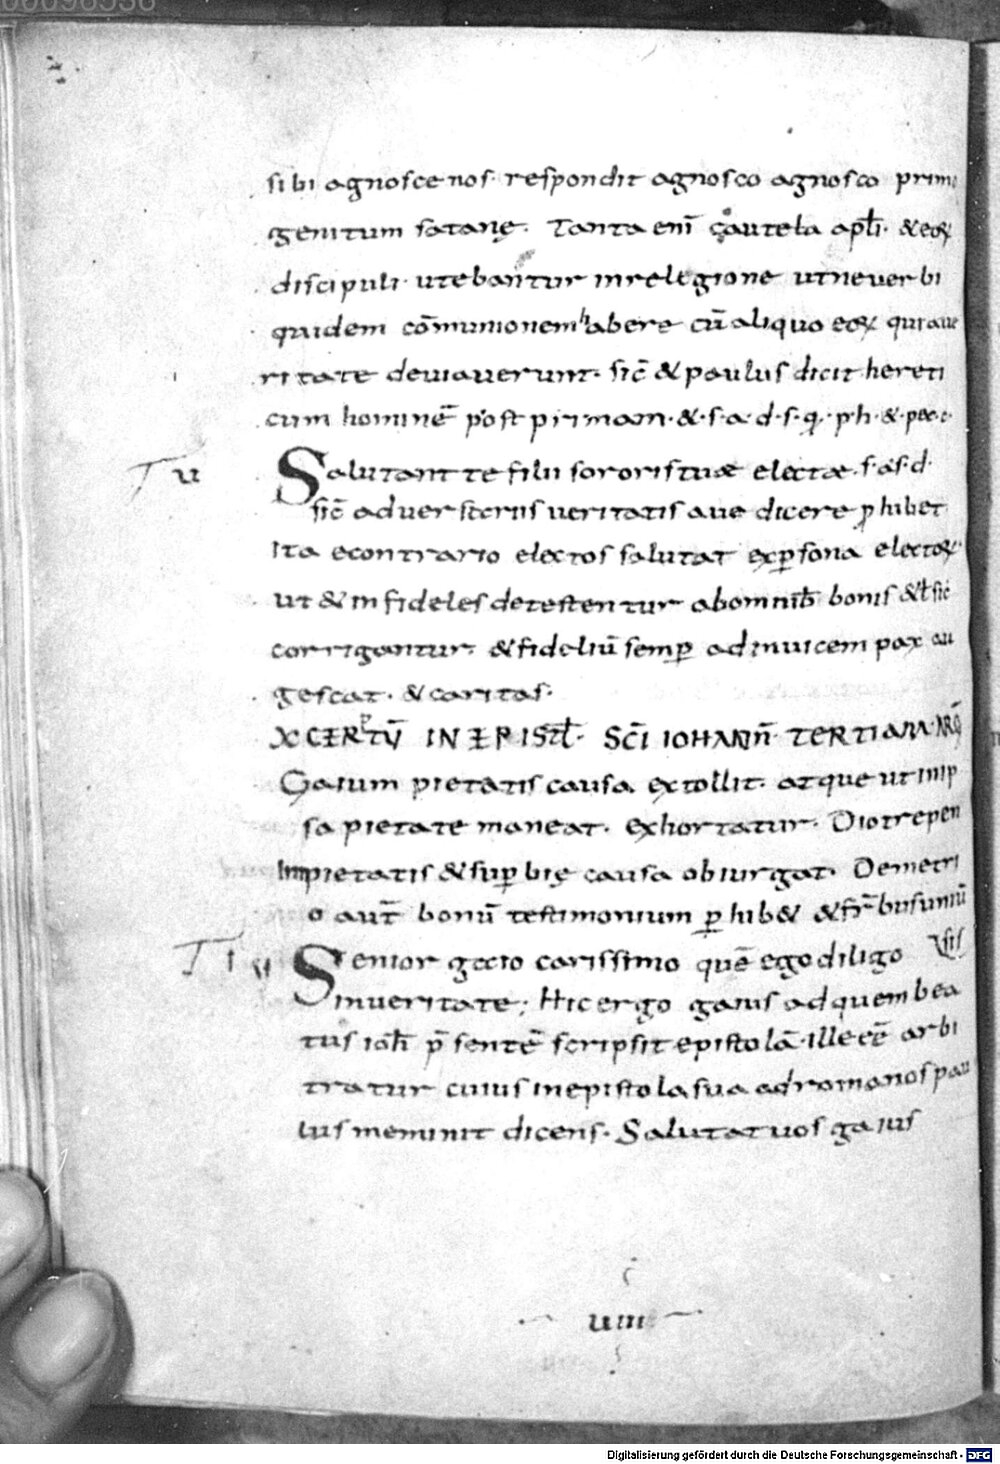 sibi agnosce nos· respondit agnosco agnosco primo
genitum satanę· Tanta enī cautela apłi· & eoꝝ
discipuli· utebantur in relegione ut ne verbi
quidem cōmunionem habere cū aliquo eoꝝ qui a ue
ritate deuiauerunt· sic̄ & paulus dicit hereti
cum hominē post primam·&·s·a·d·s·q·p·h·&·pec·
TU
Salutant te filii sororis tuæ electæ·s·a·s·d·
sic̄ aduersteriis ueritatis aue dicere ꝓhibet
Ita econtrario electos salutat ex ꝑsona electoꝝ·
ut & infideles detestentur ab omnibꝰ bonis & ł sic
corrigantur· & fideliū semꝑ ad inuicem pax au
gescat· & caritas·
XCERPTŪ IN EPISTŁ· SC̄I IOHANN̄ TERTIAM· ARG̅
Gaium pietatis causa extollit· atque ut in ip
sa pietate maneat· exhortatur· Diotrepen
Impietatis & suꝑbię causa obiurgat· Demetri
o aut̄ bonū testimonium ꝓhib& & fr̄ibus uniū
sis
TIU
Senior gaeio carissimo quē ego diligo
in ueritate; Hic ergo gaius ad quem bea
tus ioh̄ p̄sentē scripsit epistolā· ille eē arbi
tratur cuius in epistola sua ad romanos pau
lus meminit dicens· Salutat uos gaius
uiii
Digitalisierung gefördert durch die Deutsche Forschungsgemeinschaft - DFG